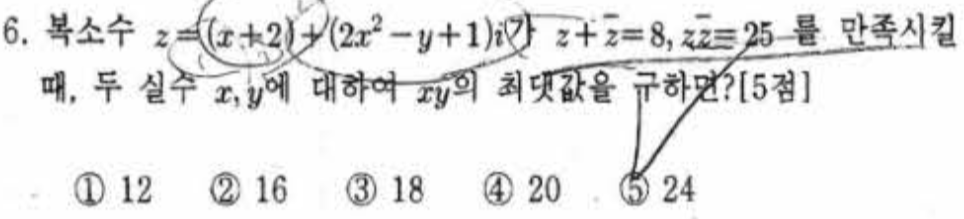 6. 복소수 z=(x+2)+(2x²-y+1)i가 z+z̄=8, zz̄=25 를 만족시킬
때, 두 실수 x, y에 대하여 xy의 최댓값을 구하면?[5점]
① 12 ② 16 ③ 18 ④ 20 ⑤ 24